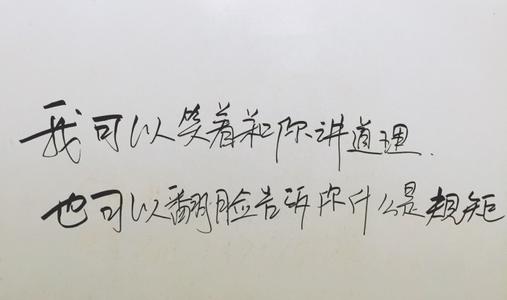 我可以笑着和你讲道理.
也可以翻脸告诉你什么是规矩